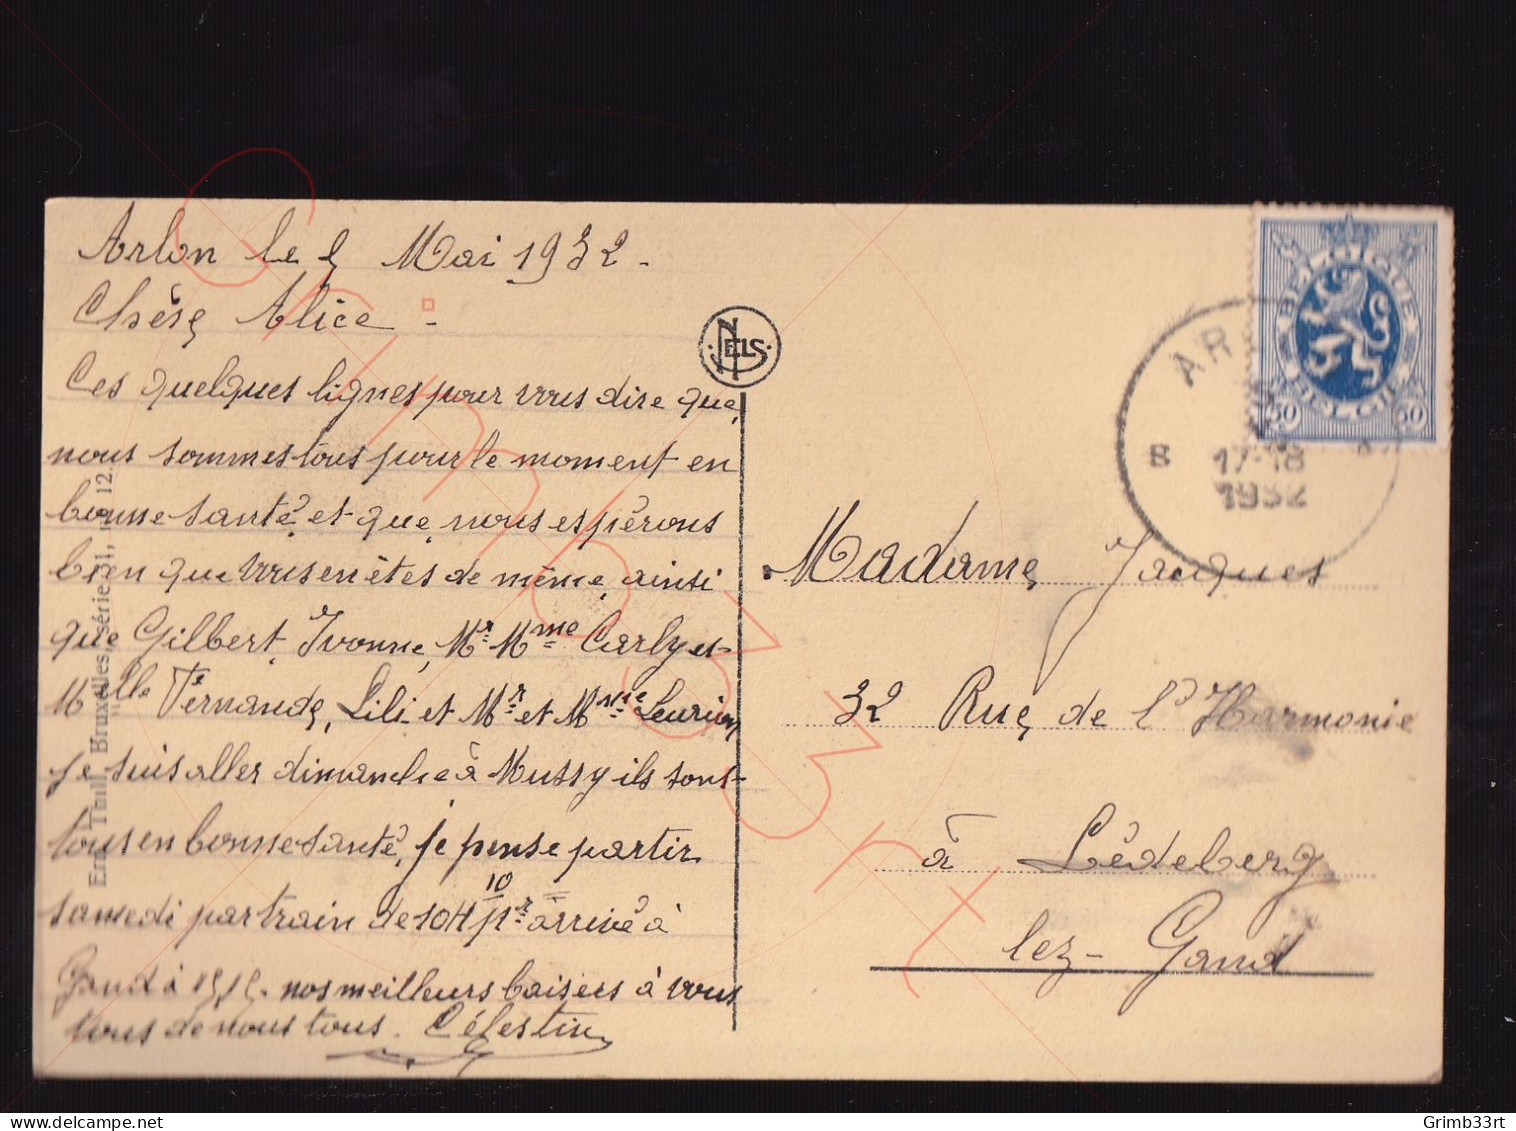 Arlon le 5 Mai 1932 -
Chère Alice -
Ces quelques lignes pour vous dire que
nous sommes tous pour le moment en
bonne santé, et que nous espérons
bien que vous en êtes de même, ainsi
que Gilbert, Ivonne, Mr Mme Carly et
Melle Fernande, Lili et Mr et Mme
je suis aller dimanche à Mussy ils sont
tous en bonne santé, je pense partir
samedi par train de 10H 10 pr arrivé à
Gand à 15,15. nos meilleurs baisers à vous
tous de nous tous. Célestin
NELS
Ern. Thill, Bruxelles, série 31, n° 12.
BELGIQUE
BELGIË
50 50
AR
8
17-18
1932
Madame Jacques
32 Rue de l'Harmonie
à Lédeberg
lez-Gand
Grimb33rt
Grimb33rt